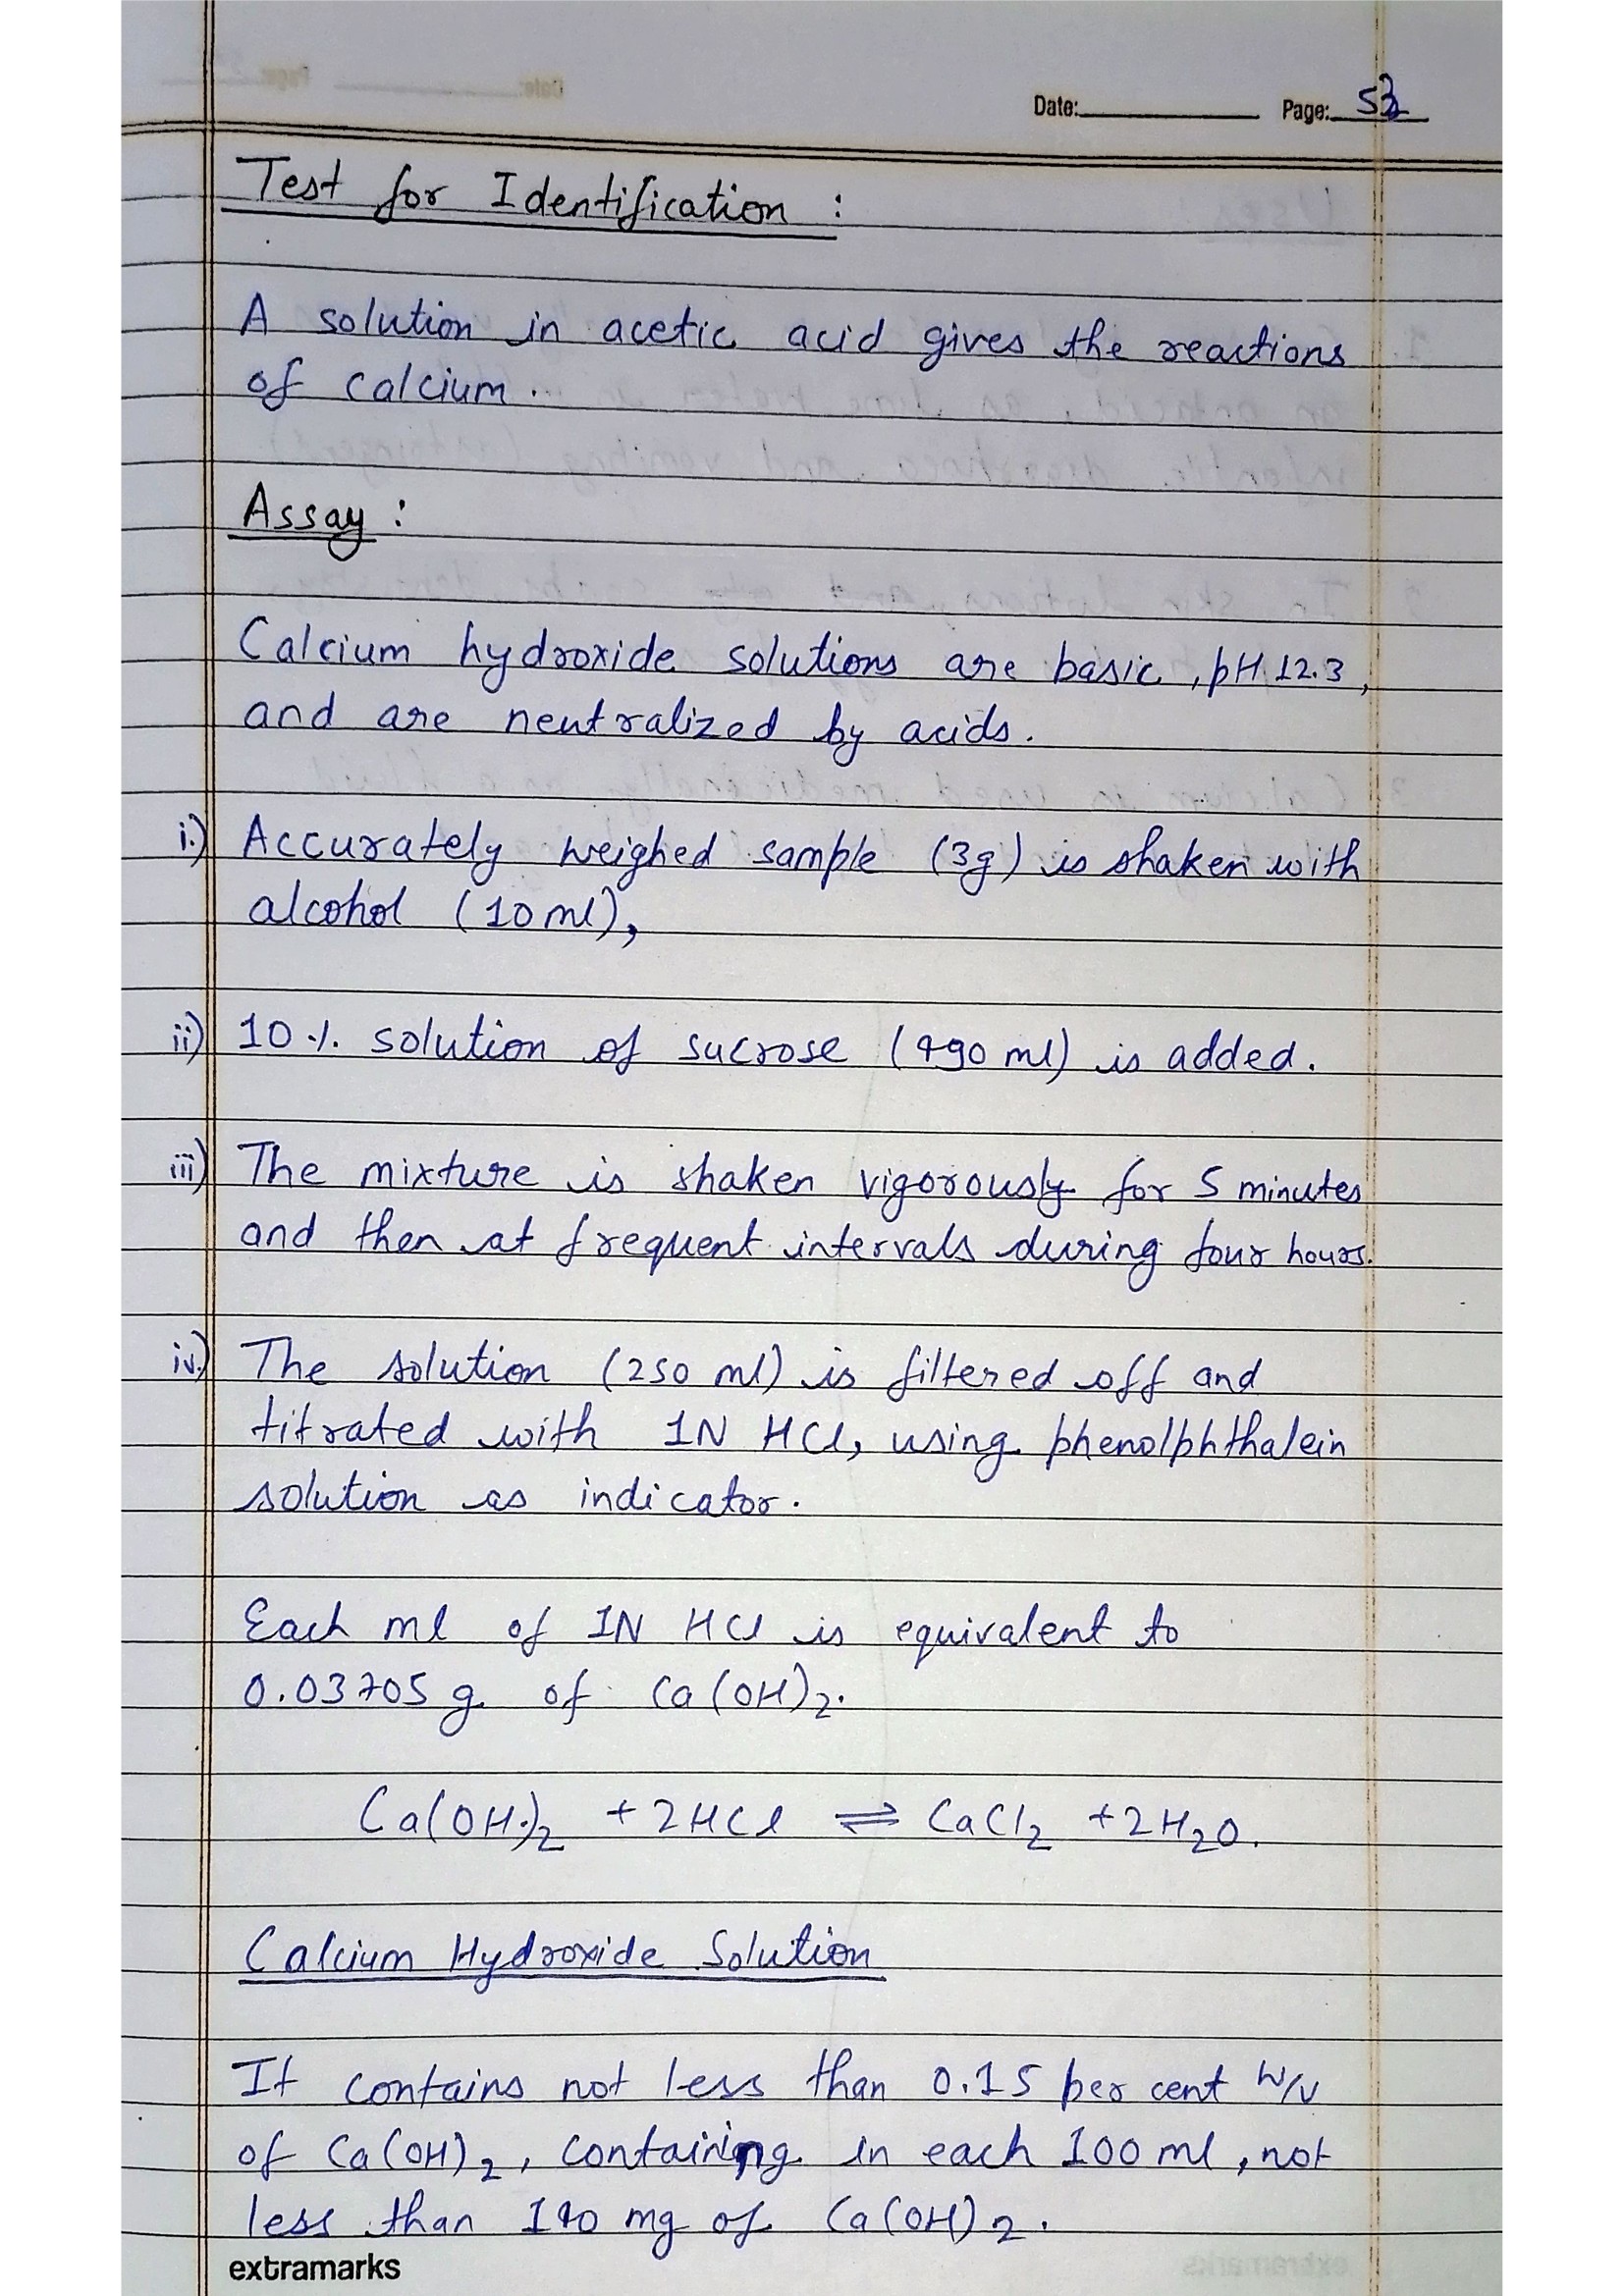 Date: Page: 53
Test for Identification :
A solution in acetic acid gives the reactions
of calcium.
Assay :
Calcium hydroxide solutions are basic, pH 12.3,
and are neutralized by acids.
i.) Accurately weighed sample (3g) is shaken with
alcohol (10 ml),
ii) 10 % solution of sucrose (490 ml) is added.
iii) The mixture is shaken vigorously for 5 minutes
and then at frequent intervals during four hours.
iv.) The solution (250 ml) is filtered off and
titrated with 1N HCl, using phenolphthalein
solution as indicator.
Each ml of 1N HCl is equivalent to
0.03705 g of Ca(OH)₂.
Ca(OH)₂ + 2HCl ⇌ CaCl₂ + 2H₂O.
Calcium Hydroxide Solution
It contains not less than 0.15 per cent w/v
of Ca(OH)₂, containing in each 100 ml, not
less than mg of Ca(OH)₂.
extramarks